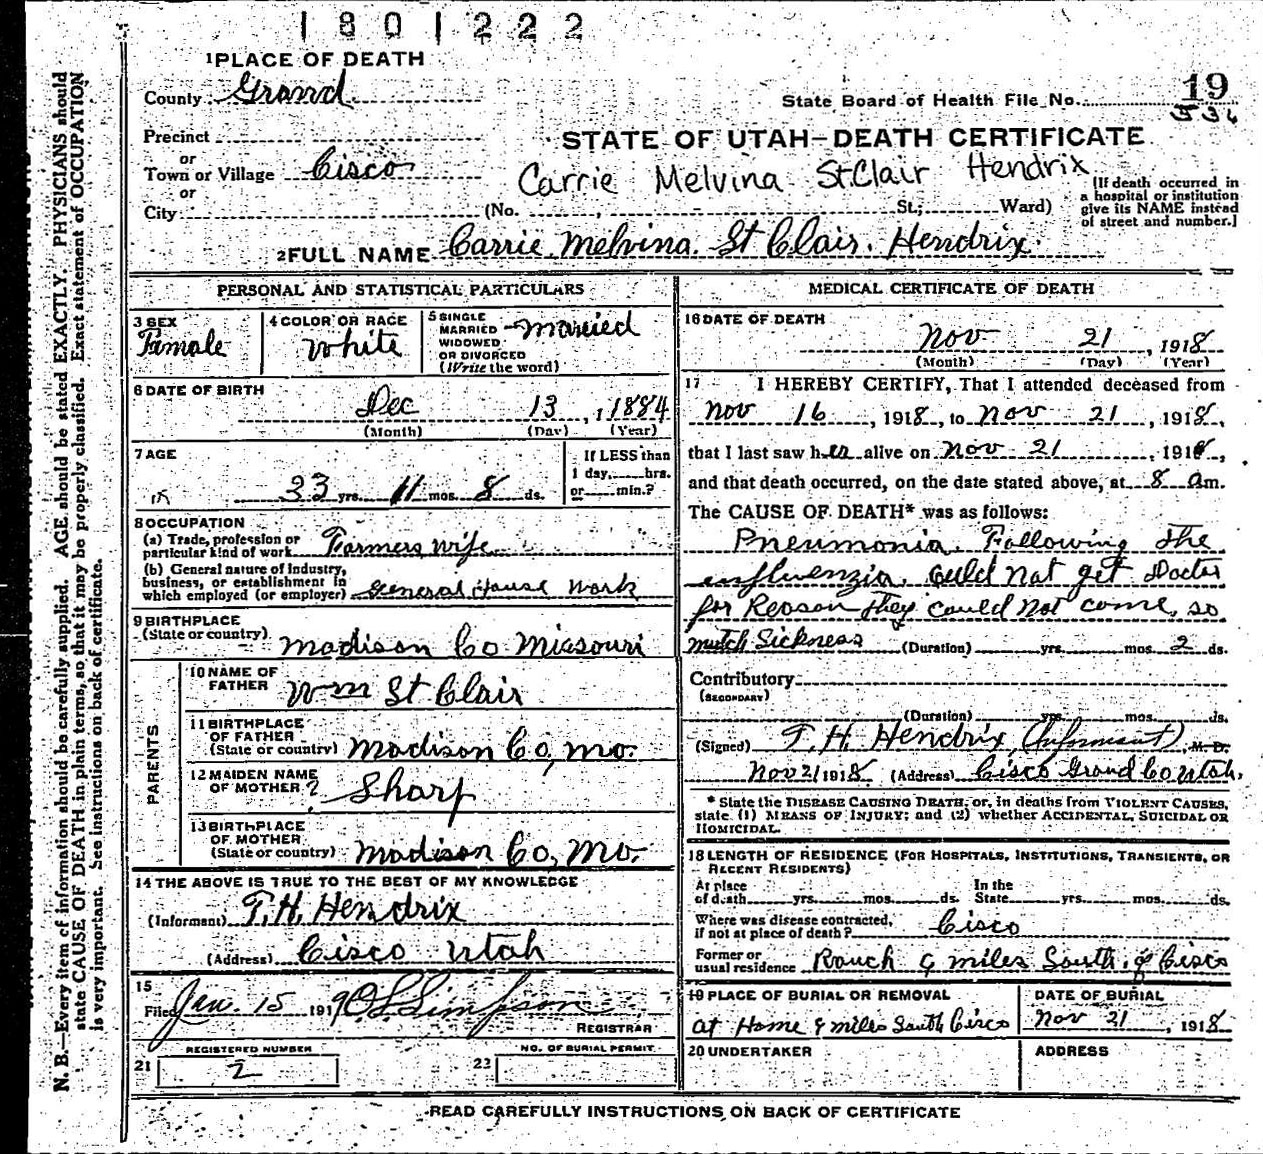 1801222
1 PLACE OF DEATH
County Grand
State Board of Health File No. 19
536
Precinct
or
STATE OF UTAH—DEATH CERTIFICATE
Town or Village Cisco
Carrie Melvina St.Clair Hendrix
or
City (No. , St.; Ward)
(If death occurred in
a hospital or institution
give its NAME instead
of street and number.]
2 FULL NAME Carrie Melvina St Clair Hendrix
PERSONAL AND STATISTICAL PARTICULARS
3 SEX
Famale
4 COLOR OR RACE
White
5 SINGLE
MARRIED
WIDOWED
OR DIVORCED
(Write the word)
Married
6 DATE OF BIRTH
Dec 13, 1884
(Month) (Day) (Year)
7 AGE
33 yrs. 11 mos. 8 ds.
If LESS than
1 day, hrs.
or min.?
8 OCCUPATION
(a) Trade, profession or
particular kind of work Farmers wife
(b) General nature of Industry,
business, or establishment in
which employed (or employer) General House Work
9 BIRTHPLACE
(State or country) Madison Co Missouri
PARENTS
10 NAME OF
FATHER Wm St Clair
11 BIRTHPLACE
OF FATHER
(State or country) Madison Co, Mo.
12 MAIDEN NAME
OF MOTHER ? Sharp
13 BIRTHPLACE
OF MOTHER
(State or country) Madison Co, Mo.
14 THE ABOVE IS TRUE TO THE BEST OF MY KNOWLEDGE
(Informant) T. H. Hendrix
(Address) Cisco Utah
15
Filed Jan. 15 1919 Simpson
REGISTRAR
REGISTERED NUMBER
21 2
NO. OF BURIAL PERMIT
22
MEDICAL CERTIFICATE OF DEATH
16 DATE OF DEATH
Nov 21, 1918
(Month) (Day) (Year)
17 I HEREBY CERTIFY, That I attended deceased from
Nov 16, 1918, to Nov 21, 1918,
that I last saw her alive on Nov 21, 1918,
and that death occurred, on the date stated above, at 8 am.
The CAUSE OF DEATH* was as follows:
Pneumonia Following the
enfluenzia. Could Not get Doctor
for Reason they could Not come, so
mutch Sickness (Duration) yrs. mos. 2 ds.
Contributory
(SECONDARY)
(Duration) yrs. mos. ds.
(Signed) T. H. Hendrix (Informant), M. D.
Nov 21 1918 (Address) Cisco Grand Co Utah.
* State the DISEASE CAUSING DEATH, or, in deaths from VIOLENT CAUSES,
state (1) MEANS OF INJURY; and (2) whether ACCIDENTAL, SUICIDAL OR
HOMICIDAL.
18 LENGTH OF RESIDENCE (FOR HOSPITALS, INSTITUTIONS, TRANSIENTS, OR
RECENT RESIDENTS)
At place
of death yrs. mos. ds.
In the
State yrs. mos. ds.
Where was disease contracted,
if not at place of death? Cisco
Former or
usual residence Ranch 9 miles South of Cisco
19 PLACE OF BURIAL OR REMOVAL
at Home 9 miles South Cisco
DATE OF BURIAL
Nov 21, 1918
20 UNDERTAKER
ADDRESS
READ CAREFULLY INSTRUCTIONS ON BACK OF CERTIFICATE
N. B.—Every item of information should be carefully supplied. AGE should be stated EXACTLY. PHYSICIANS should
state CAUSE OF DEATH in plain terms, so that it may be properly classified. Exact statement of OCCUPATION
is very important. See instructions on back of certificate.